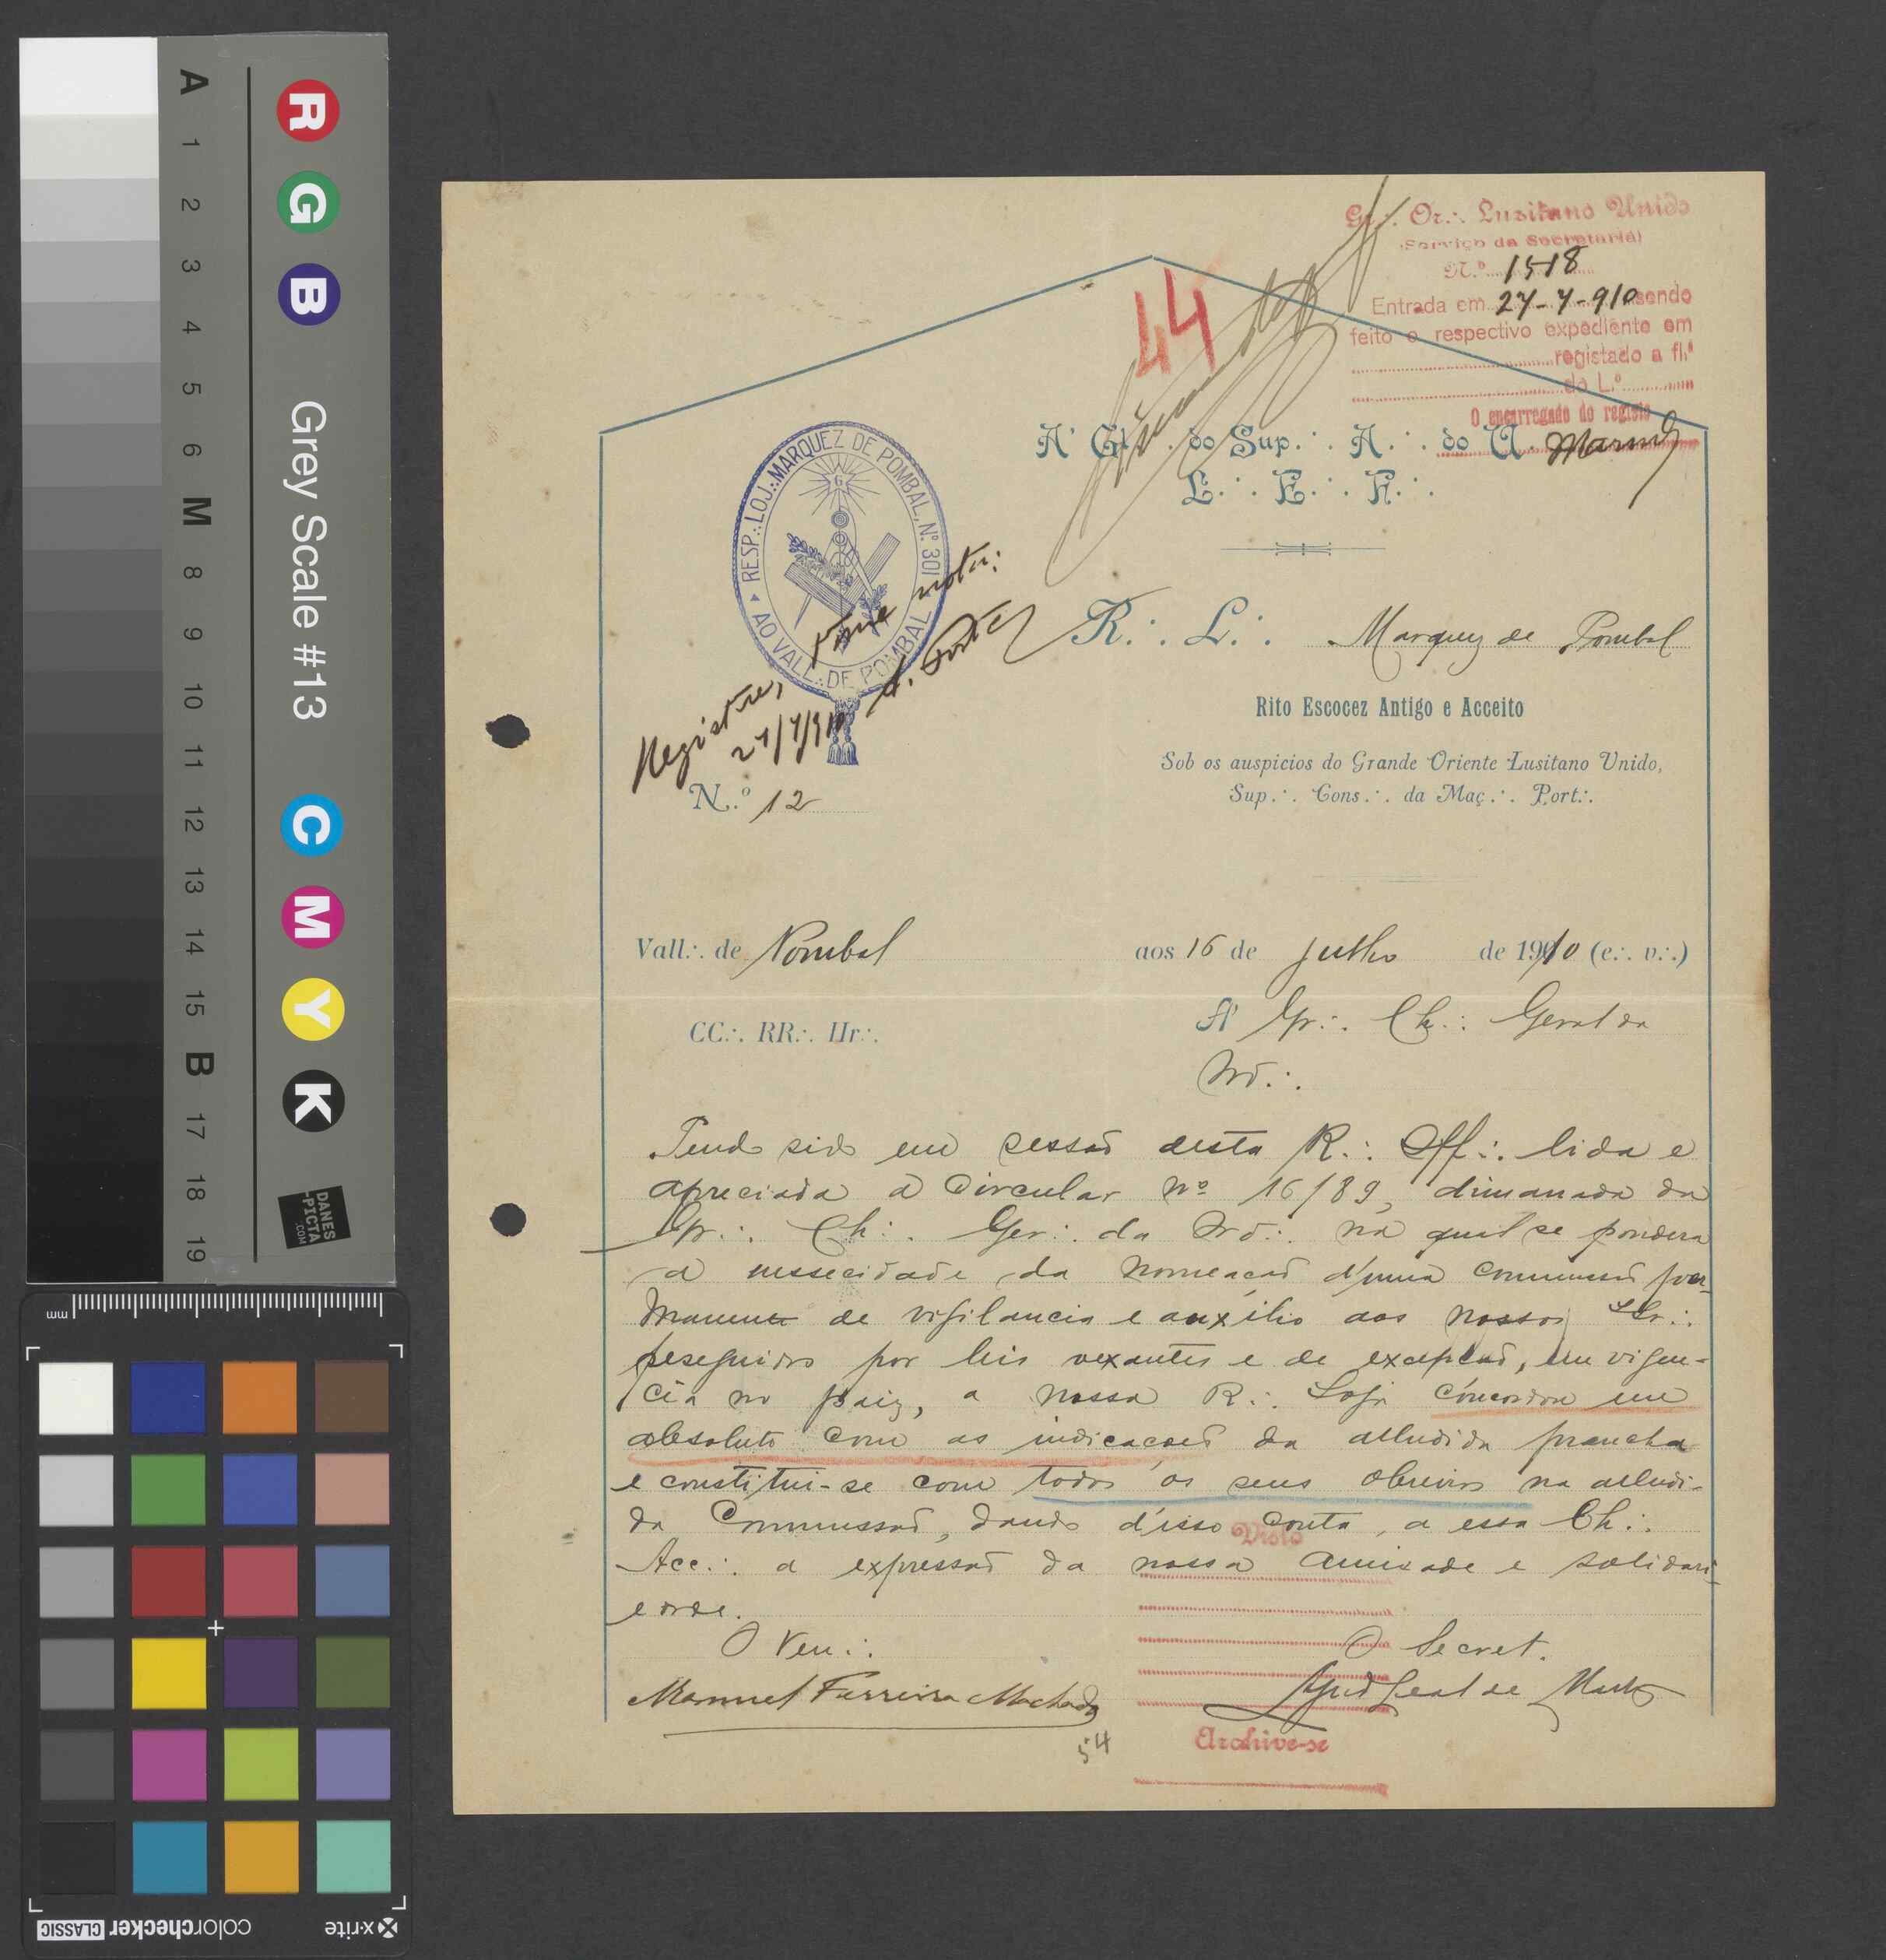 Gr∴ Or∴ Lusitano Unido
(Serviço da Secretaria)
N.º 1518
Entrada em 27-7-910 sendo
feito o respectivo expediente em
registado a fl.ª
do L.º
O encarregado do registo
44
A' Gl∴ do Sup∴ A∴ do U∴
L∴ E∴ F∴
RESP∴ LOJ∴ MARQUEZ DE POMBAL, Nº 301
AO VALL∴ DE POMBAL
G
Registre, tome nota:
27/7/910
R∴ L∴ Marquez de Pombal
Rito Escocez Antigo e Acceito
Sob os auspicios do Grande Oriente Lusitano Unido,
Sup∴ Cons∴ da Maç∴ Port∴
N.º 12
Vall∴ de Pombal aos 16 de Julho de 1910 (e∴ v∴)
CC∴ RR∴ IIr∴
A' Gr∴ Ch∴ Geral da
Ord∴
Tendo sido em sessaõ desta R∴ Off∴ lida e
apreciada a Circular nº 16/89, dimanada da
Gr∴ Ch∴ Ger∴ da Ord∴ na qual se pondera
a nessecidade da nomeaçaõ d'uma commissaõ per-
manente de vigilancia e auxilio aos nossos Ir∴
peseguidos por leis vexantes e de excepçaõ, em vigen-
cia no paiz, a nossa R∴ Loja concordou em
absoluto com as indicaçoes da alludida prancha
e constitui-se com todos os seus obreiros na alludi-
da Commissaõ, dando d'isso conta, a essa Ch∴
Acc∴ a expressaõ da nossa amizade e solidari-
edade.
Visto
O Ven∴
O Secret.
Manuel Ferreira Machado
Leal de
54
Archive-se
A 1 2 3 4 5 6 M 8 9 10 11 12 13 14 15 B 17 18 19
R G B Grey Scale #13 C M Y K
DANES
-PICTA
.COM
mm
x-rite
colorchecker CLASSIC